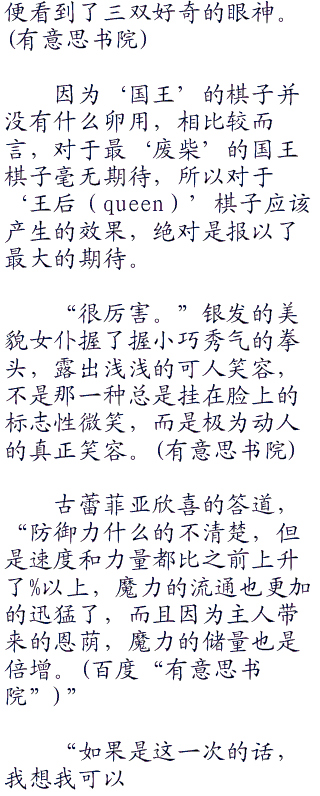 便看到了三双好奇的眼神。
(有意思书院)
因为‘国王’的棋子并
没有什么卵用，相比较而
言，对于最‘废柴’的国王
棋子毫无期待，所以对于
‘王后（queen）’棋子应该
产生的效果，绝对是报以了
最大的期待。
“很厉害。”银发的美
貌女仆握了握小巧秀气的拳
头，露出浅浅的可人笑容，
不是那一种总是挂在脸上的
标志性微笑，而是极为动人
的真正笑容。(有意思书院)
古蕾菲亚欣喜的答道，
“防御力什么的不清楚，但
是速度和力量都比之前上升
了%以上，魔力的流通也更加
的迅猛了，而且因为主人带
来的恩荫，魔力的储量也是
倍增。(百度“有意思书
院”)”
“如果是这一次的话，
我想我可以